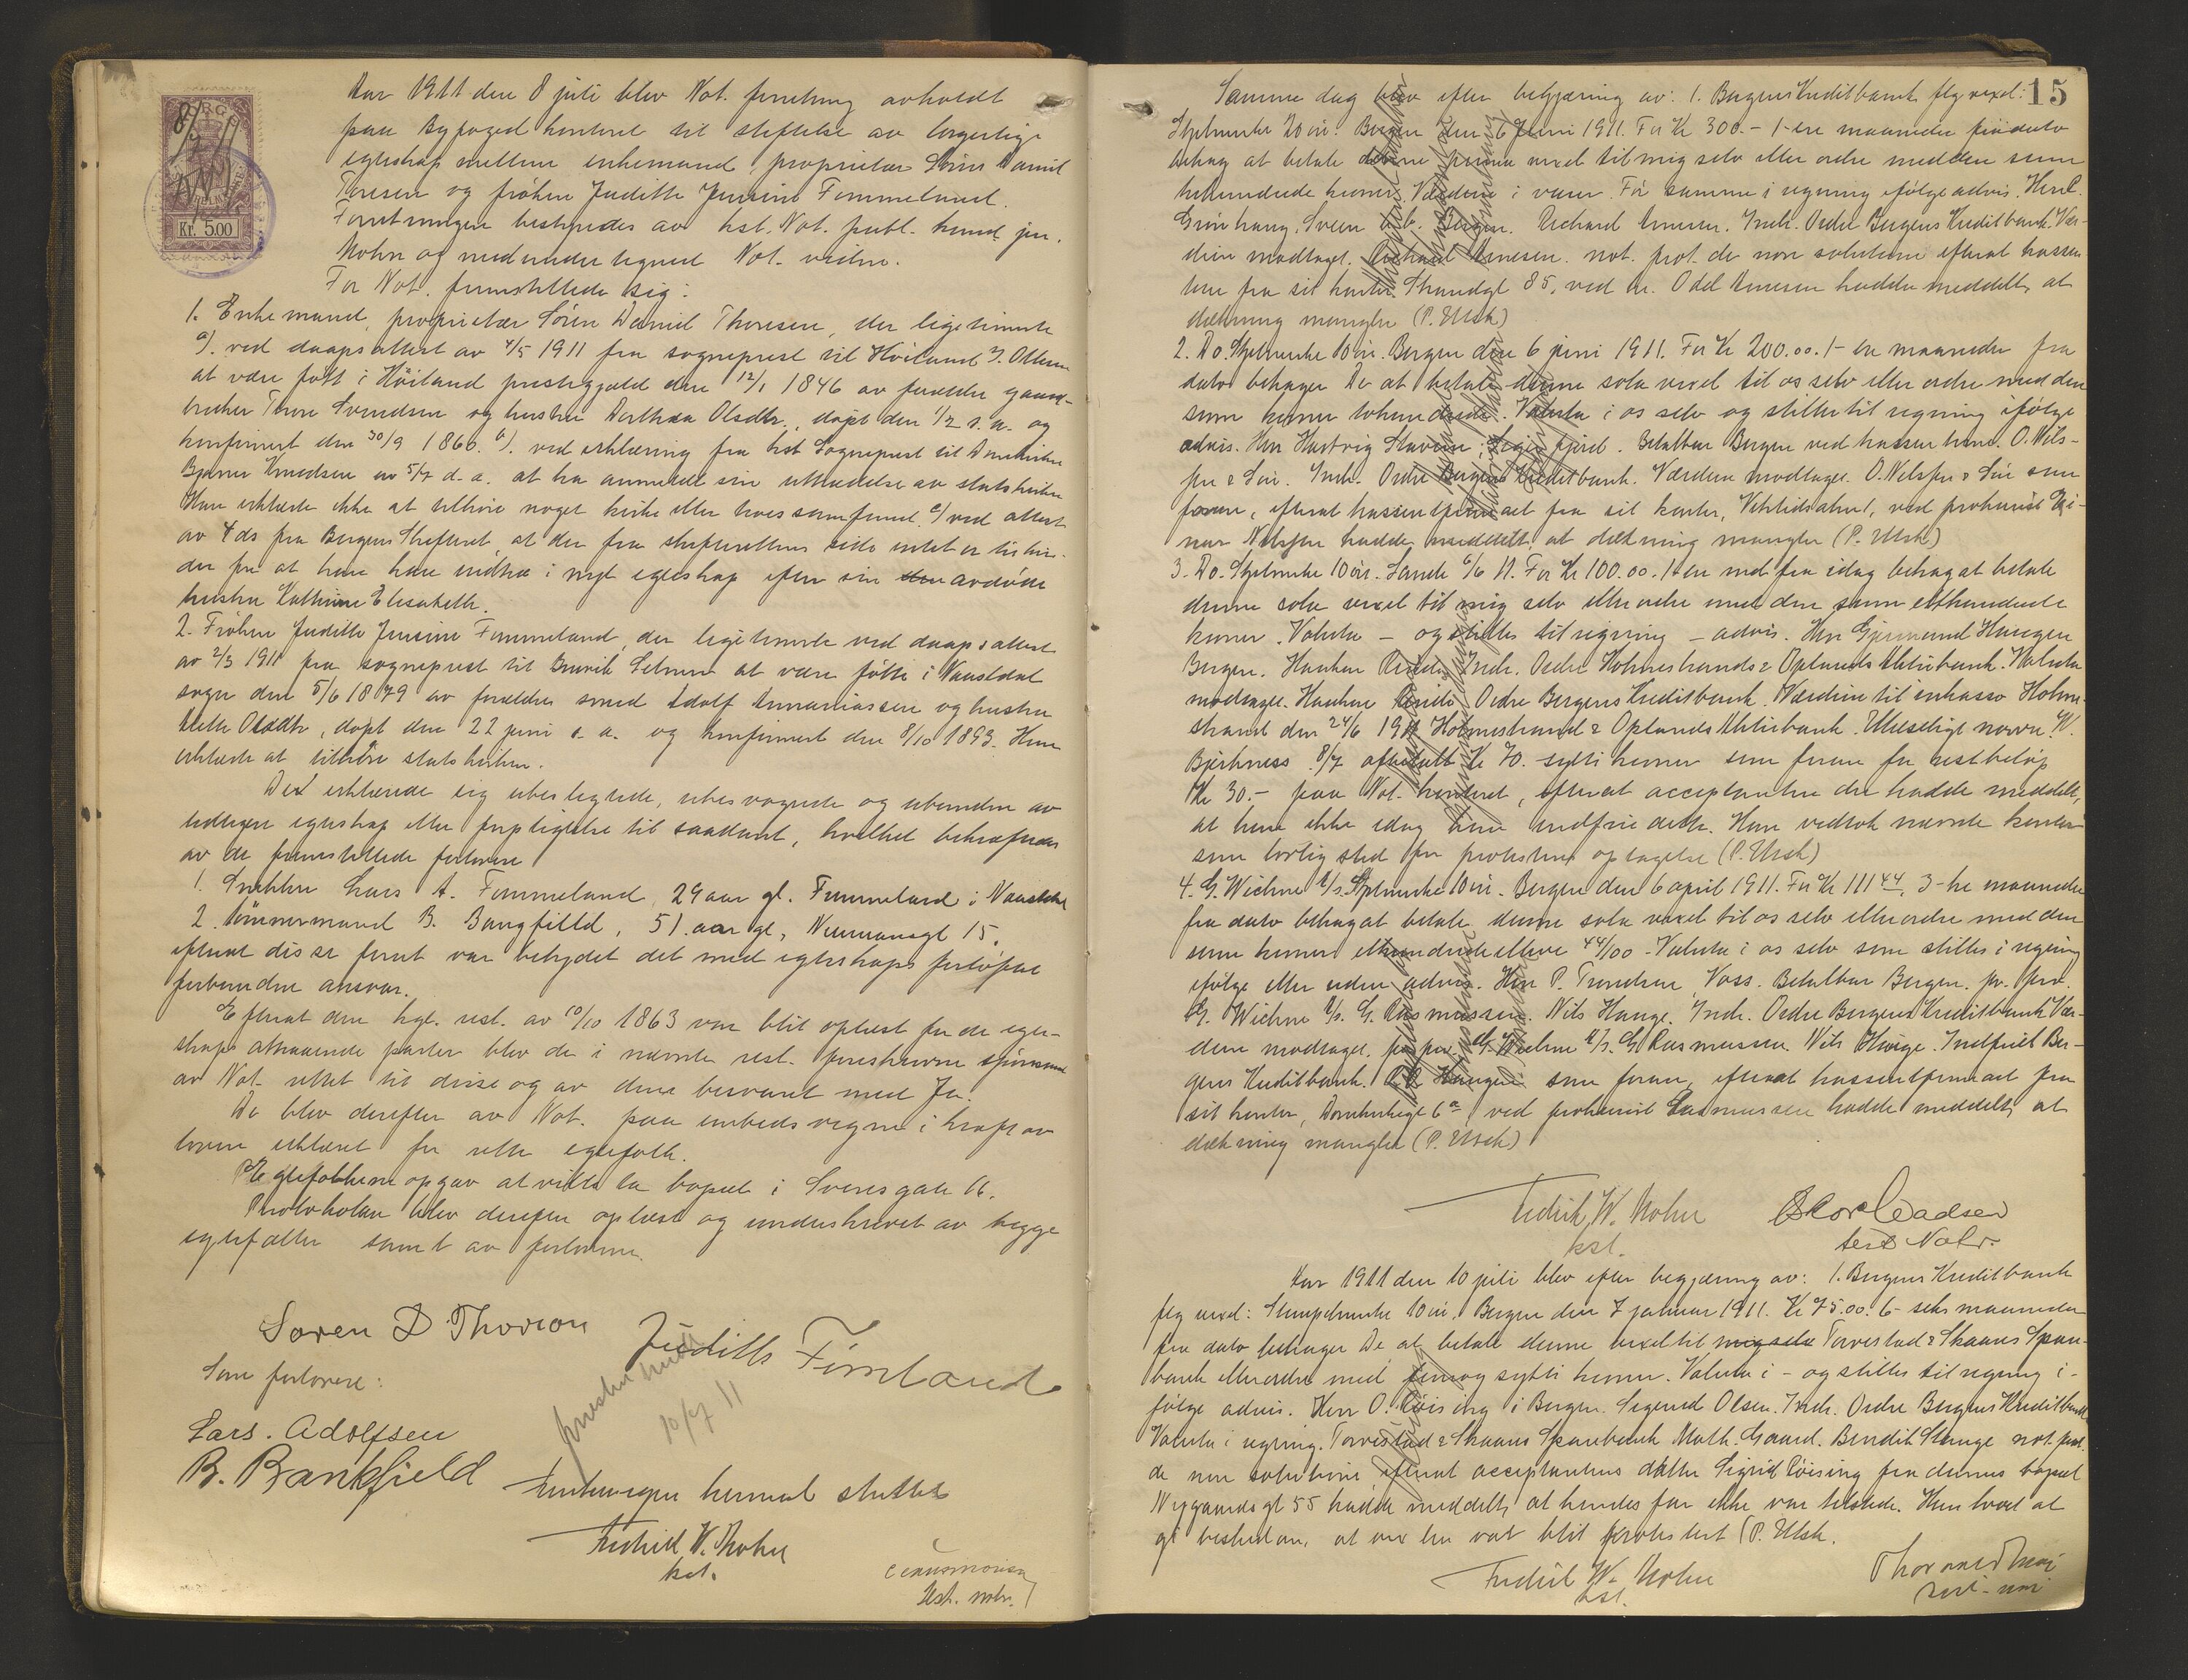 Aar 1911 den 8 juli blev Not. forretning avholdt
paa Byfoged kontoret til stiftelse av borgerlig
egteskap mellem enkemand, proprietær Sören Daniel
Toresen og fröken Judithe Jensine Fimmeland.
Forretningen bestyredes av kst. Not. publ. Knud jun.
Mohn og medundertegned Not. vidne.
For Not. fremstillede sig:
1. Enkemand, proprietær Sören Daniel Thoresen, der legitimerte
a). ved daapsattest av 4/5 1911 fra sogneprest til Höiland J. Olsen
at være født i Höiland prestegjæld den 12/1 1846 av forældre gaard-
bruker Tore Svendsen og hustru Dorthea Olsdtr., døpt den 1/2 s. a. og
konfirmert den 30/9 1860. b). ved erklæring fra kst Sogneprest til Domkirken
Bjarne Knudsen av 5/7 d. a. at ha anmeldt sin uttrædelse av statskirken
Han erklærte ikke at tilhöre noget kirke eller troessamfund. c) ved attest
av 4 ds fra Bergens Skifteret, at der fra skifterettens side intet er til hin-
der for at han kan indtræ i nyt egteskap efter sin avdöde
hustru Kathrine Elisabeth.
2. Fröken Judithe Jensine Fimmeland, der legitimerte ved daapsattest
av 2/3 1911 fra sogneprest til at være födt i Naustdal
sogn den 5/6 1879 av forældre smed Adolf Annaniassen og hustru
Olsdtr, døpt den 22 juni s. a. og konfirmert den 8/10 1893. Hun
erklærte at tilhöre statskirken.
De erklærede sig ubeslegtede, ubesvogrede og ubundne av
tidligere egteskap eller forpligtelse til saadant, hvilket bekræftedes
av de fremstillede forlovere
1. Snekker Lars A. Fimmeland, 29 aar gl. Fimmeland i Naustdal
2. tömmermand B. Bangfield, 51 aar gl, Neumansgt 15.
efterat disse forut var betydet det med egteskaps forløfte
forbundne ansvar.
Efterat den kgl. res. av 10/10 1863 var blit oplæst for de egte-
skaps attraaende parter blev de i nævnte res. foreskrevne spörsmaal
av Not. rettet til disse og av dem besvaret med Ja.
De blev derefter av Not. paa embeds vegne i kraft av
loven erklæret for rette egtefolk.
Egtefolkene opgav at ville ta bopæl i Sverresgate 16.
Protokollen blev derefter oplæst og underskrevet av begge
egtefæller samt av forloverne.
Sören D Thorson Judith Fimland
Som forlovere:
Lars. Adolfsen
B. Bankfield
10/7 11
Forretningen hermed sluttet
Fredrik W. Mohn
kst.
15
Samme dag blev efter begjæring av: 1. Bergens Kreditbank flg vexel:
Stplmerke 20 ör. Bergen den 6 Juni 1911. For Kr 300.- 1- en maaned fra dato
behag at betale denne prima vexel til mig selv eller ordre med den sum
trehundrede kroner. Værdien i varer. För samme i regning efölge advis. Herr
Bergen. Richard Arnesen. Indr. Ordre Bergens Kreditbank. Vær-
dien modtaget. Richard Arnesen. not. prot. de non solutione efterat trassen-
ten fra sit kontor Strandgt 85, ved hr. Odd Arnesen hadde meddelt, at
dækning mangler (P. Utsk)
2. Do. Stplmerke 10 ör. Bergen den 6 juni 1911. For Kr 200.00. 1- en maaned fra
dato behager De at betale denne sola vexel til os selv eller ordre med den
sum kroner tohundrede. Valuta i os selv og stilles til regning ifölge
advis. Herr Hartvig Stavenes, fjord. Betalbar Bergen ved trassenten. O. Nils-
sen & Sön. Indr. Ordre Bergens Kreditbank. Værdien modtaget. O. Nilssen & Sön som
foran, efterat trassentfirmaet fra sit kontor, ved prokurist Ei-
nar Nilssen hadde meddelt at dækning mangler (P. Utsk)
3. Do. Stplmerke 10 ör. Sande 6/6 11. For Kr 100.00. 1 en md fra idag behag at betale
denne sola vexel til mig selv eller ordre med den sum etthundrede
kroner. Valuta - og stilles til regning - advis. Herr Gjermund Haugen
Bergen. Haakon Indr. Ordre Holmestrands & Oplands Aktiebank. Valuta
modtaget. Haakon Ordre Bergens Kreditbank. Værdien til inkasso Holme-
strand den 24/6 1911 Holmestrand & Oplands Aktiebank. Utlæselig navn. W.
Björkness. 8/7 afbetalt Kr 70. sytti kroner som foran for restbelöp
Kr 30.- paa Not. kontoret, efterat acceptanten der hadde meddelt,
at han ikke idag kan indfri dette. Han vedtok nævnte kontor
som lovlig sted for protestens optagelse (P. Utsk)
4. G. Wichne A/s. Stplmerke 10 ör. Bergen den 6 april 1911. For Kr 111 44, 3- tre maaneder
fra dato behag at betale denne sola vexel til os selv eller ordre med den
sum kroner etthundredeelleve 44/100 - Valuta i os selv som stilles i regning
efölge eller uden advis. Herr P. Trondsen, Voss. Betalbar Bergen. pr. pro.
G. Wichne A/s. G. Rasmussen. Nils Hauge. Indr. Ordre Bergens Kreditbank Vær-
dien modtaget. for pro. G. Wichne A/s. G Rasmussen. Nils Hauge. Indfriet Ber-
gens Kreditbank. som foran, efterat trassentfirmaet fra
sit kontor, Domkirkegt 6a, ved prokurist Rasmussen hadde meddelt, at
dækning mangler (P. Utsk)
Fredrik W. Mohn
kst.
Aar 1911 den 10 juli blev efter begjæring av: 1. Bergens Kreditbank
flg vexel: Stempelmerke 10 ör. Bergen den 7 januar 1911. Kr 75.00. 6- seks maaneder
fra dato behager De at betale denne vexel til mig selv Torvestad & Skaares Spare-
bank eller ordre med femogsytti kroner. Valuta i - og stilles til regning i-
fölge advis. Herr O. Röising i Bergen. Sigurd Olsen. Indr. Ordre Bergens Kreditbank
Valuta i regning. Torvestad & Skaares Sparebank Math. Gaard. Bendik Stange not. prot.
de non solutione efterat acceptantens datter Sigrid Röising fra dennes bopæl
Nygaardsgt 55 hadde meddelt, at hendes far ikke var tilstede. Hun lovet at
gi besked om, at vexlen var blit protestert (P. Utsk.
Fredrik W. Mohn
kst.
NORGE
Kr. 5.00